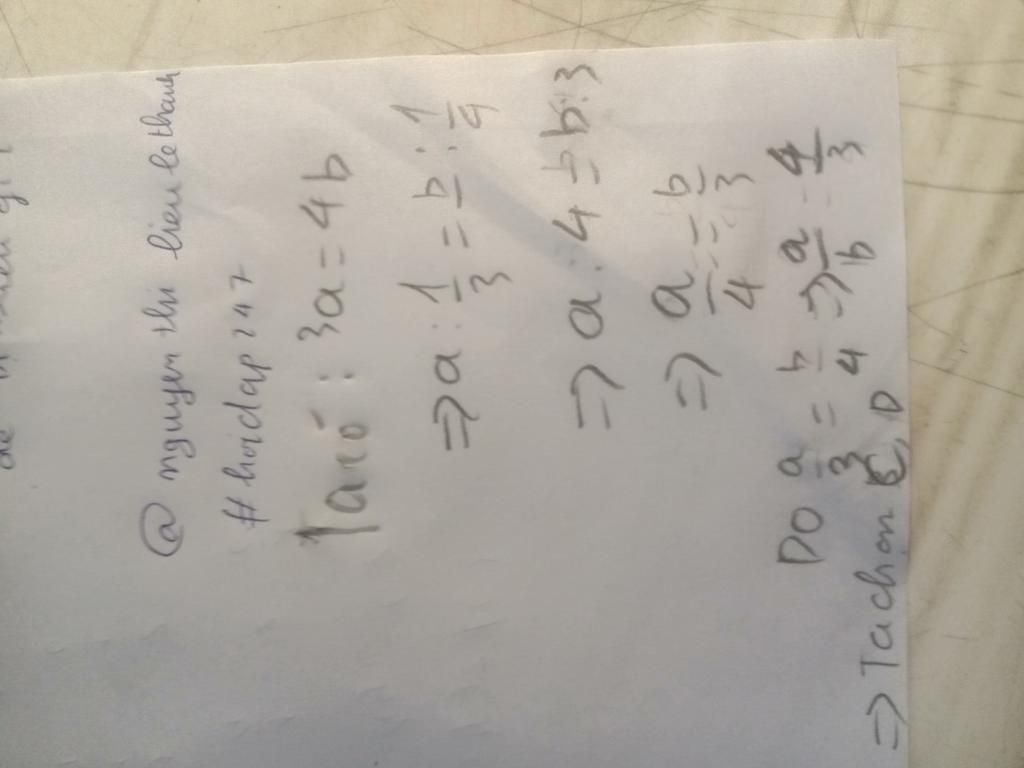 @ nguyen thi lieu lethanh
# hoidap247
Ta có : 3a = 4b
=> a : 1/3 = b : 1/4
=> a : 4 = b : 3
=> a/4 = b/3
Do a/3 = b/4 => a/b = 4/3
=> Ta chọn C, D